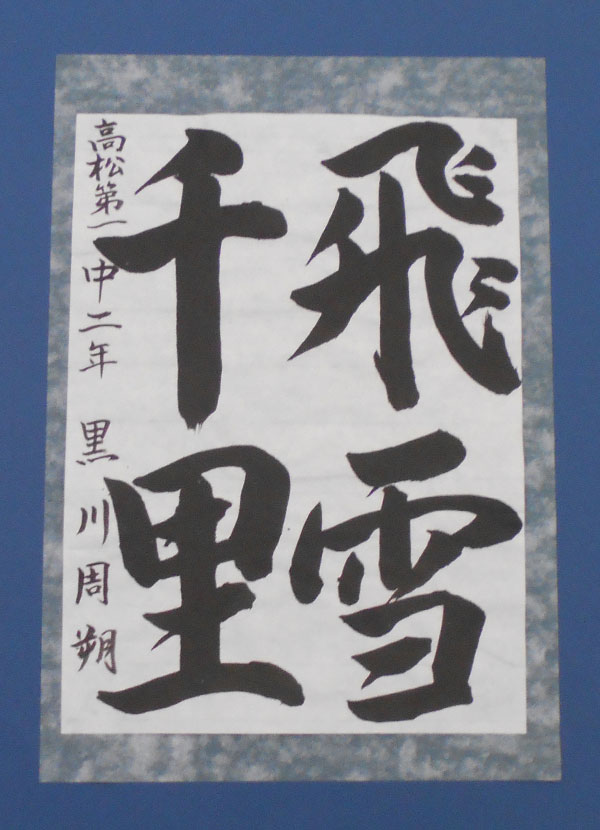 飛雪
千里
高松第一中二年 黒川周朔